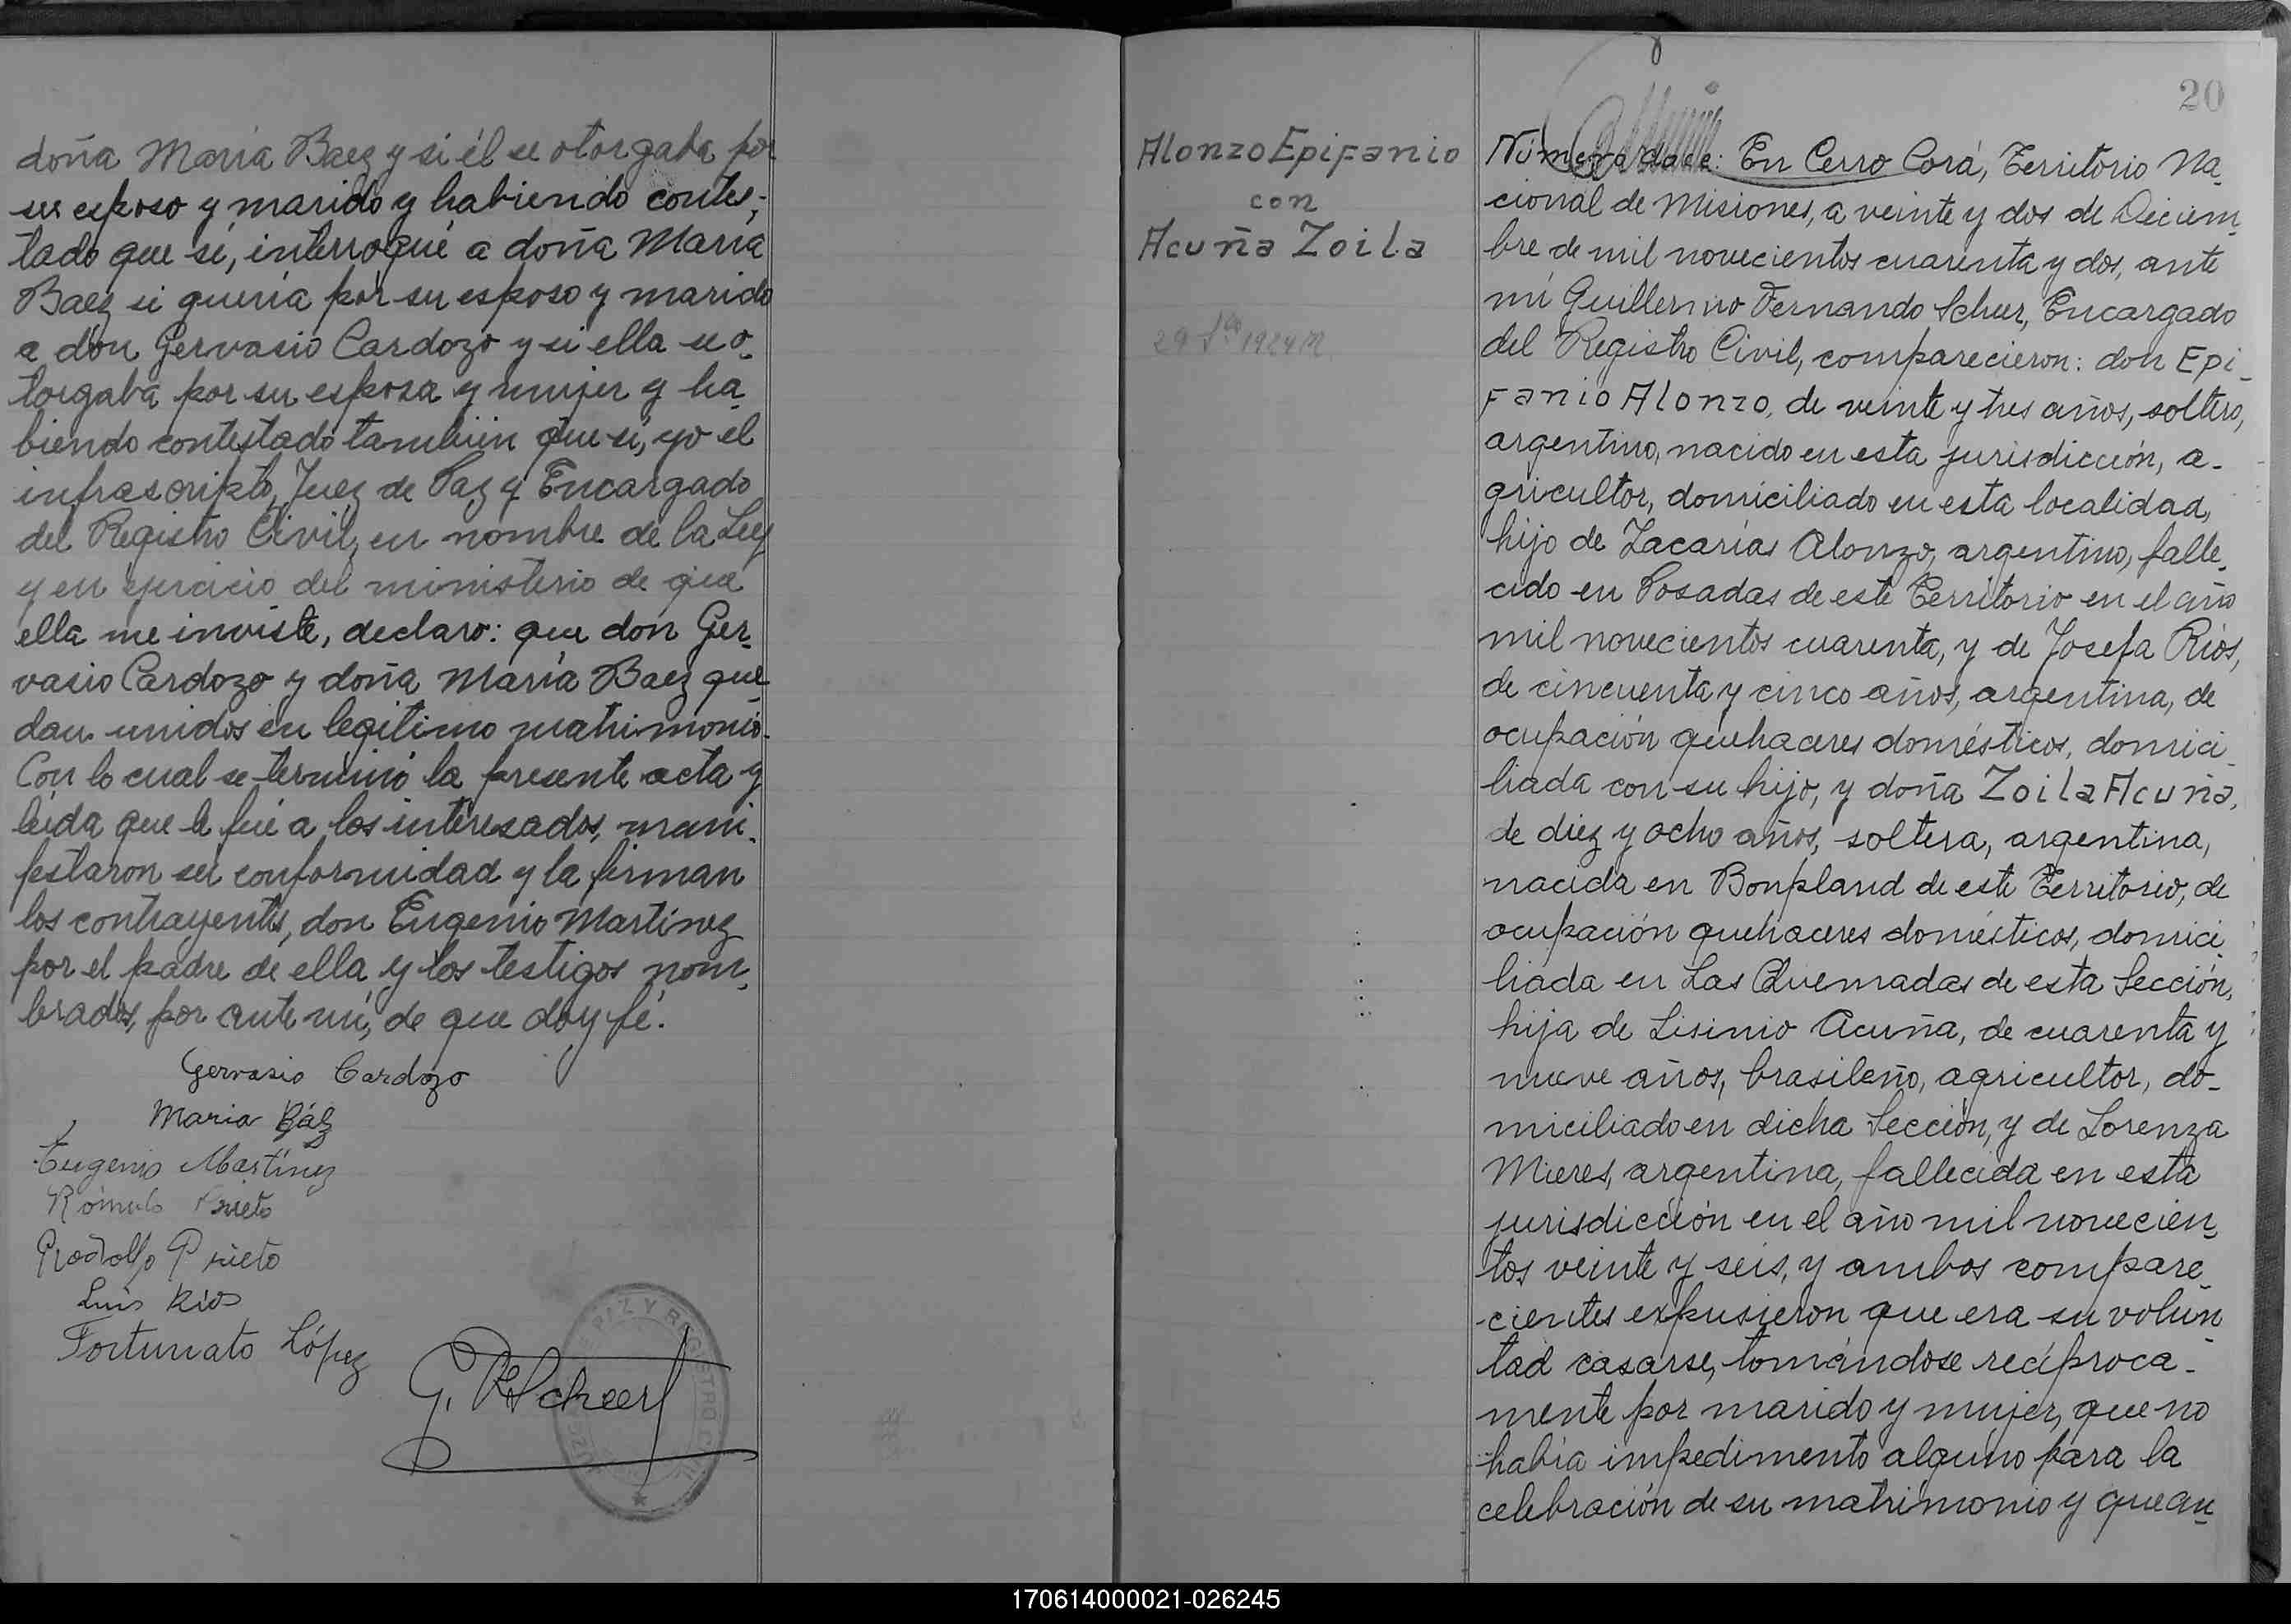 doña María Baez y si él se otorgaba por
su esposo y marido y habiendo contes-
tado que sí, interrogué a doña María
Baez si quería por su esposo y marido
a don Gervasio Cardozo y si ella se o-
torgaba por su esposa y mujer y ha-
biendo contestado también que sí, yo el
infrascripto, Juez de Paz y Encargado
del Registro Civil, en nombre de la Ley
y en ejercicio del ministerio de que
ella me inviste, declaro: que don Ger-
vasio Cardozo y doña María Baez que-
dan unidos en legítimo matrimonio.
Con lo cual se terminó la presente acta y
leída que le fué a los interesados, mani-
festaron su conformidad y la firman
los contrayentes, don Eugenio Martínez
por el padre de ella y los testigos nom-
brados, por ante mí, de que doy fé.
Gervasio Cardozo
Maria Báz
Eugenio Martínez
Rómulo Prieto
Rodolfo Prieto
Luis Rios
Fortunato López
PAZ Y REGISTRO CIVIL
20
Alonzo Epifanio
con
Acuña Zoila
Número doce: En Cerro Corá, Territorio Na-
cional de Misiones, a veinte y dos de Diciem-
bre de mil novecientos cuarenta y dos, ante
mí Guillermo Fernando Scheer, Encargado
del Registro Civil, comparecieron: don Epi-
fanio Alonzo, de veinte y tres años, soltero,
argentino, nacido en esta jurisdicción, a-
gricultor, domiciliado en esta localidad,
hijo de Zacarías Alonzo, argentino, falle-
cido en Posadas de este Territorio en el año
mil novecientos cuarenta, y de Josefa Ríos,
de cincuenta y cinco años, argentina, de
ocupación quehaceres domésticos, domici-
liada con su hijo, y doña Zoila Acuña,
de diez y ocho años, soltera, argentina,
nacida en Bonpland de este Territorio, de
ocupación quehaceres domésticos, domici-
liada en Las Quemadas de esta Sección,
hija de Lisinio Acuña, de cuarenta y
nueve años, brasileño, agricultor, do-
miciliado en dicha Sección, y de Lorenza
Mieres, argentina, fallecida en esta
jurisdicción en el año mil novecien-
tos veinte y seis, y ambos compare-
cientes expusieron que era su volun-
tad casarse, tomándose recíproca-
mente por marido y mujer, que no
había impedimento alguno para la
celebración de su matrimonio y que au-
170614000021-026245